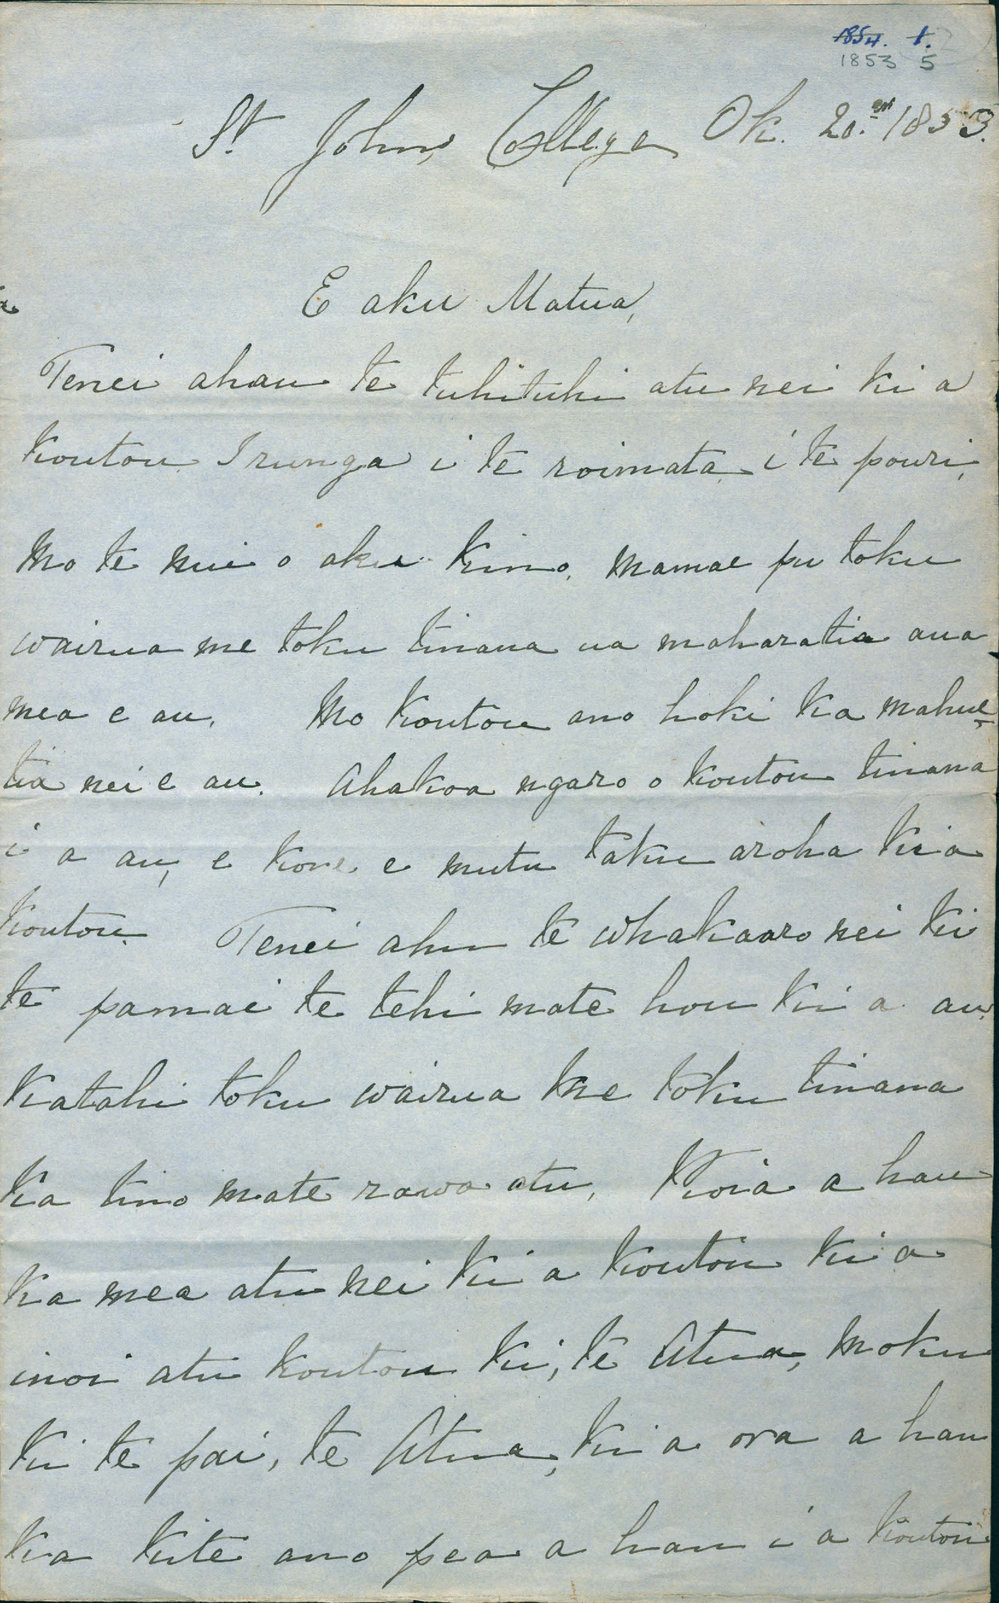 1854. 1.
1853 5
St Johns College Ok. 20.th 1853.
E aku Matua,
Tenei ahau te tuhituhi atu nei ki a
koutou I runga i te roimata i te pouri,
Mo te nui o aku kino. Mamae pu toku
wairua me toku tinana ua maharatia aua
mea e au. Mo koutou ano hoki ka mahue
tia nei e au. Ahakoa ngaro o koutou tinana
i a au, e kore e mutu taku aroha ki a
koutou. Tenei ahu te whakaaro nei ki
te pamai te tehi mate hou ki a au.
Katahi toku wairua me toku tinana
ka tino mate rawa atu. Koia a hau
ka mea atu nei ki a koutou ki a
inoi atu koutou ki, te Atua, moku
ki te pai, te Atua, ki a ora a hau
ka kite ano pea a hau i a koutou